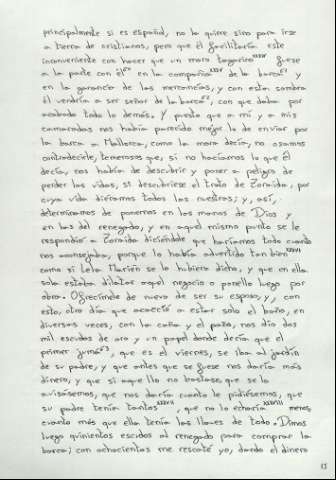 principalmente si es español, no la quiere sino para irse
a tierra de cristianos; pero que él facilitaría este
inconveniente con hacer que un moro tagarino fuese
a la parte con él en la compañía de la barca y
en la ganancia de las mercancías, y con esta sombra
él vendría a ser señor de la barca, con que daba por
acabado todo lo demás. Y puesto que a mí y a mis
camaradas nos había parecido mejor lo de enviar por
la barca a Mallorca, como la mora decía, no osamos
contradecirle, temerosos que, si no hacíamos lo que él
decía, nos había de descubrir y poner a peligro de
perder las vidas, si descubriese el trato de Zoraida, por
cuya vida diéramos todos las nuestras; y, así,
determinamos de ponernos en las manos de Dios y
en las del renegado, y en aquel mismo punto se le
respondió a Zoraida diciéndole que haríamos todo cuanto
nos aconsejaba, porque lo había advertido tan bien
como si Lela Marién se lo hubiera dicho, y que en ella
sola estaba dilatar aquel negocio o ponello luego por
obra. Ofrecímele de nuevo de ser su esposo, y, con
esto, otro día que acaeció a estar solo el baño, en
diversas veces, con la caña y el paño, nos dio dos
mil escudos de oro y un papel donde decía que el
primer jumá, que es el viernes, se iba al jardín
de su padre, y que antes que se fuese nos daría más
dinero, y que si aquello no bastase que se lo
avisásemos, que nos daría cuanto le pidiésemos, que
su padre tenía tantos, que no lo echaría menos,
cuanto más que ella tenía las llaves de todo. Dimos
luego quinientos escudos al renegado para comprar la
barca; con ochocientos me rescaté yo, dando el dinero